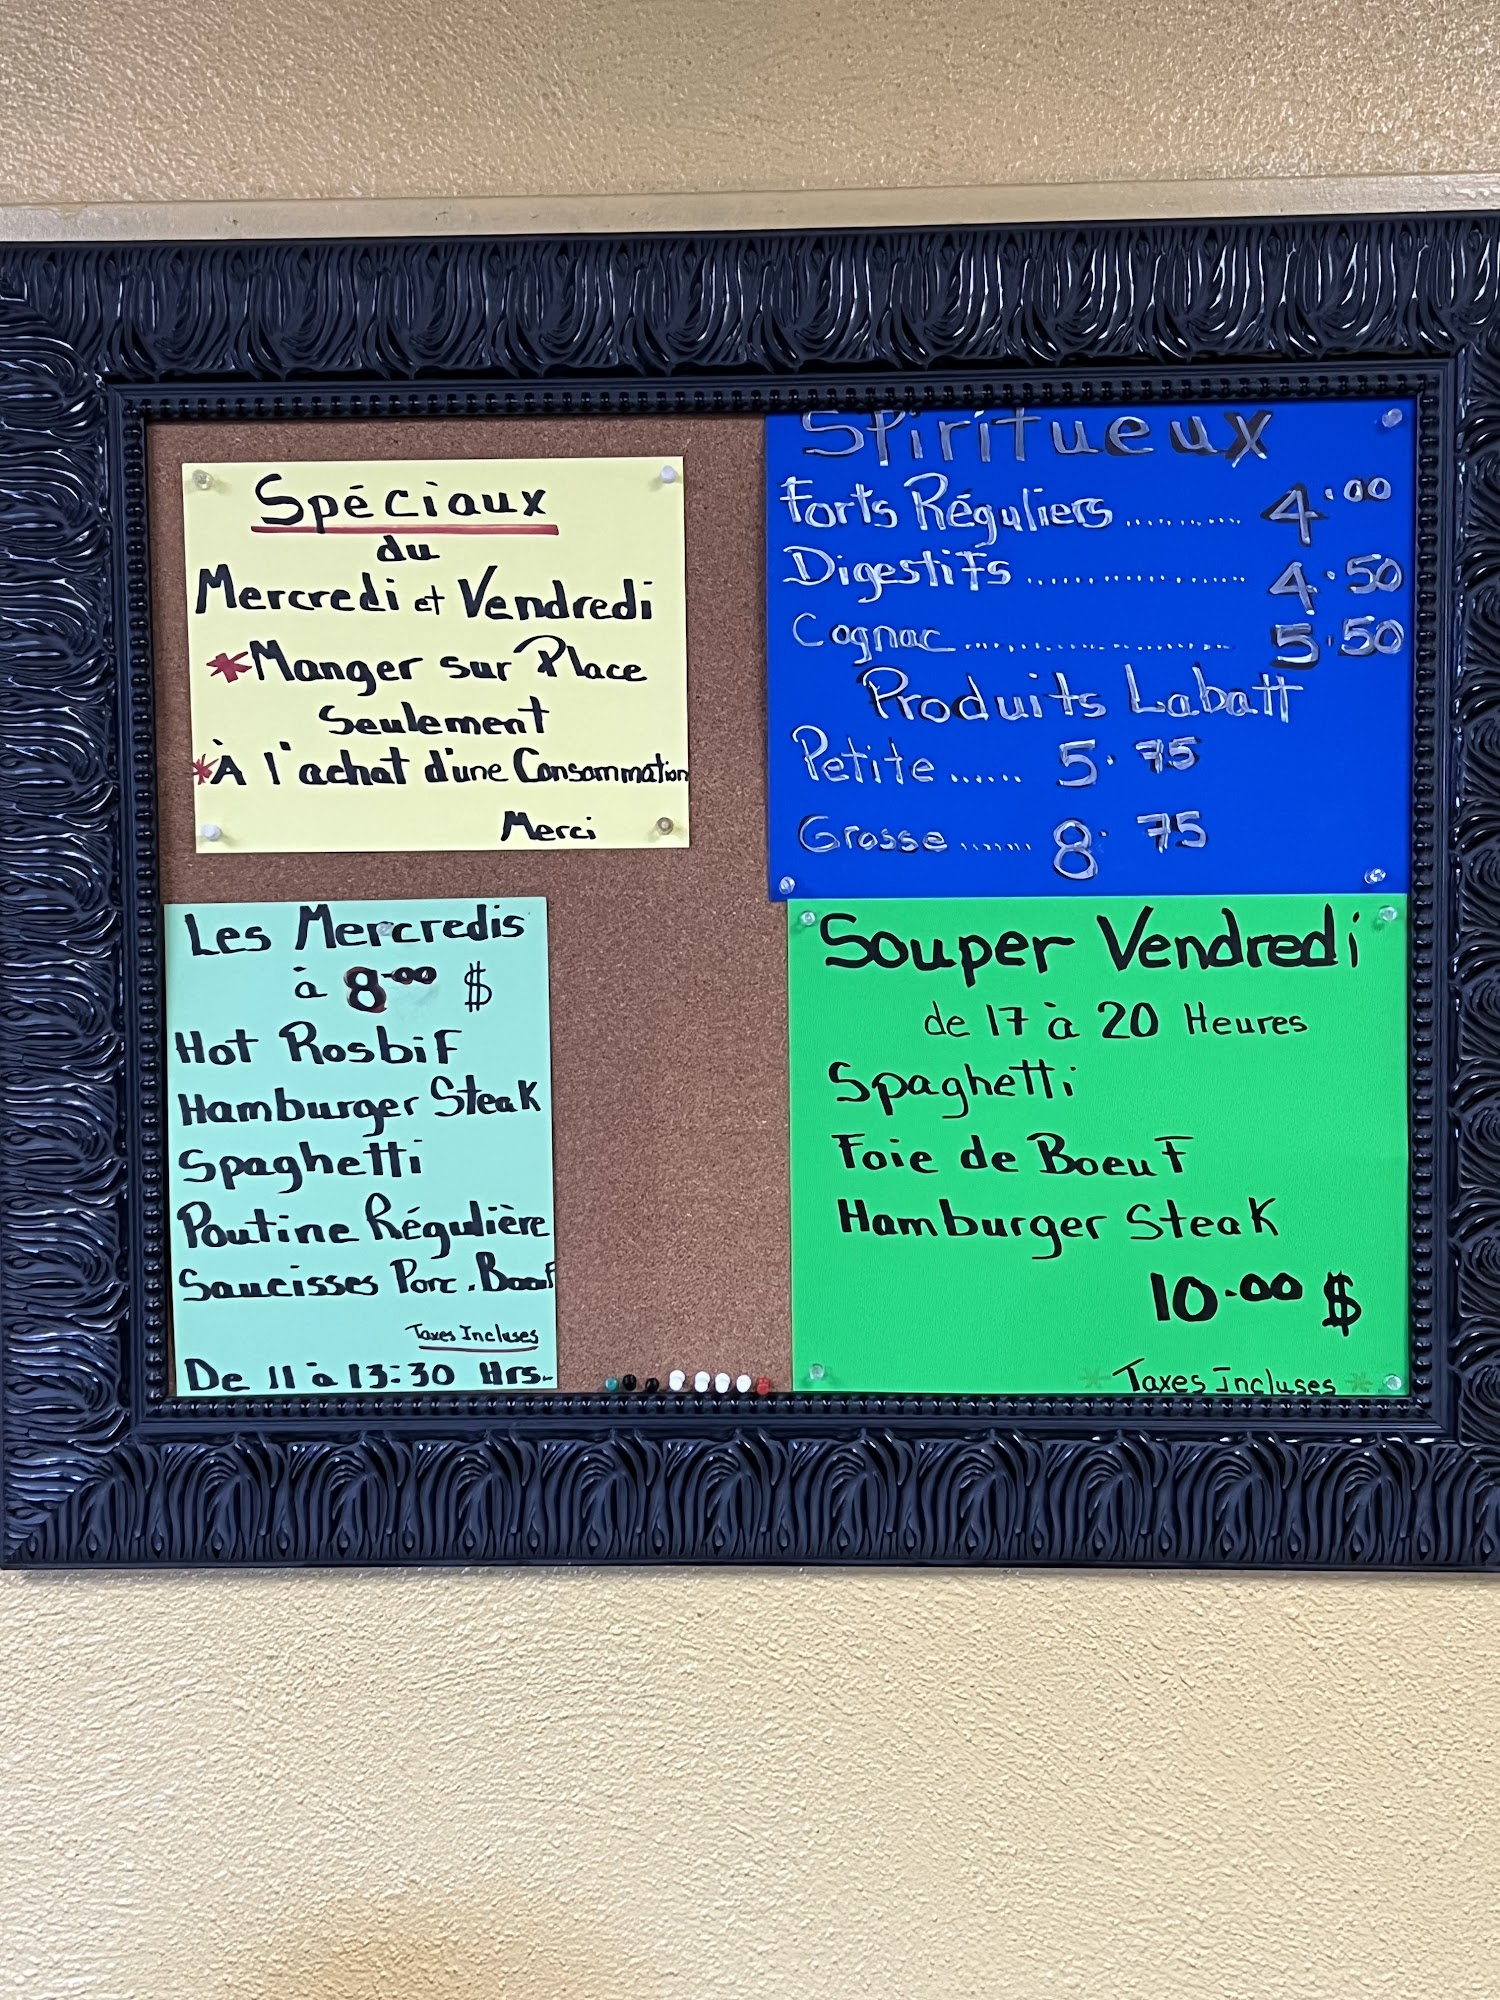 Spéciaux
du
Mercredi et Vendredi
*Manger sur Place
Seulement
*À l'achat d'une Consommation
Merci
Spiritueux
Forts Réguliers ........... 4.00
Digestifs ................... 4.50
Cognac ........................ 5.50
Produits Labatt
Petite ...... 5.75
Grosse ....... 8.75
Les Mercredis
à 8.00 $
Hot Rosbif
Hamburger Steak
Spaghetti
Poutine Régulière
Saucisses Porc. Boeuf
Taxes Incluses
De 11 à 13:30 Hrs.
Souper Vendredi
de 17 à 20 Heures
Spaghetti
Foie de Boeuf
Hamburger Steak
10.00 $
* Taxes Incluses *